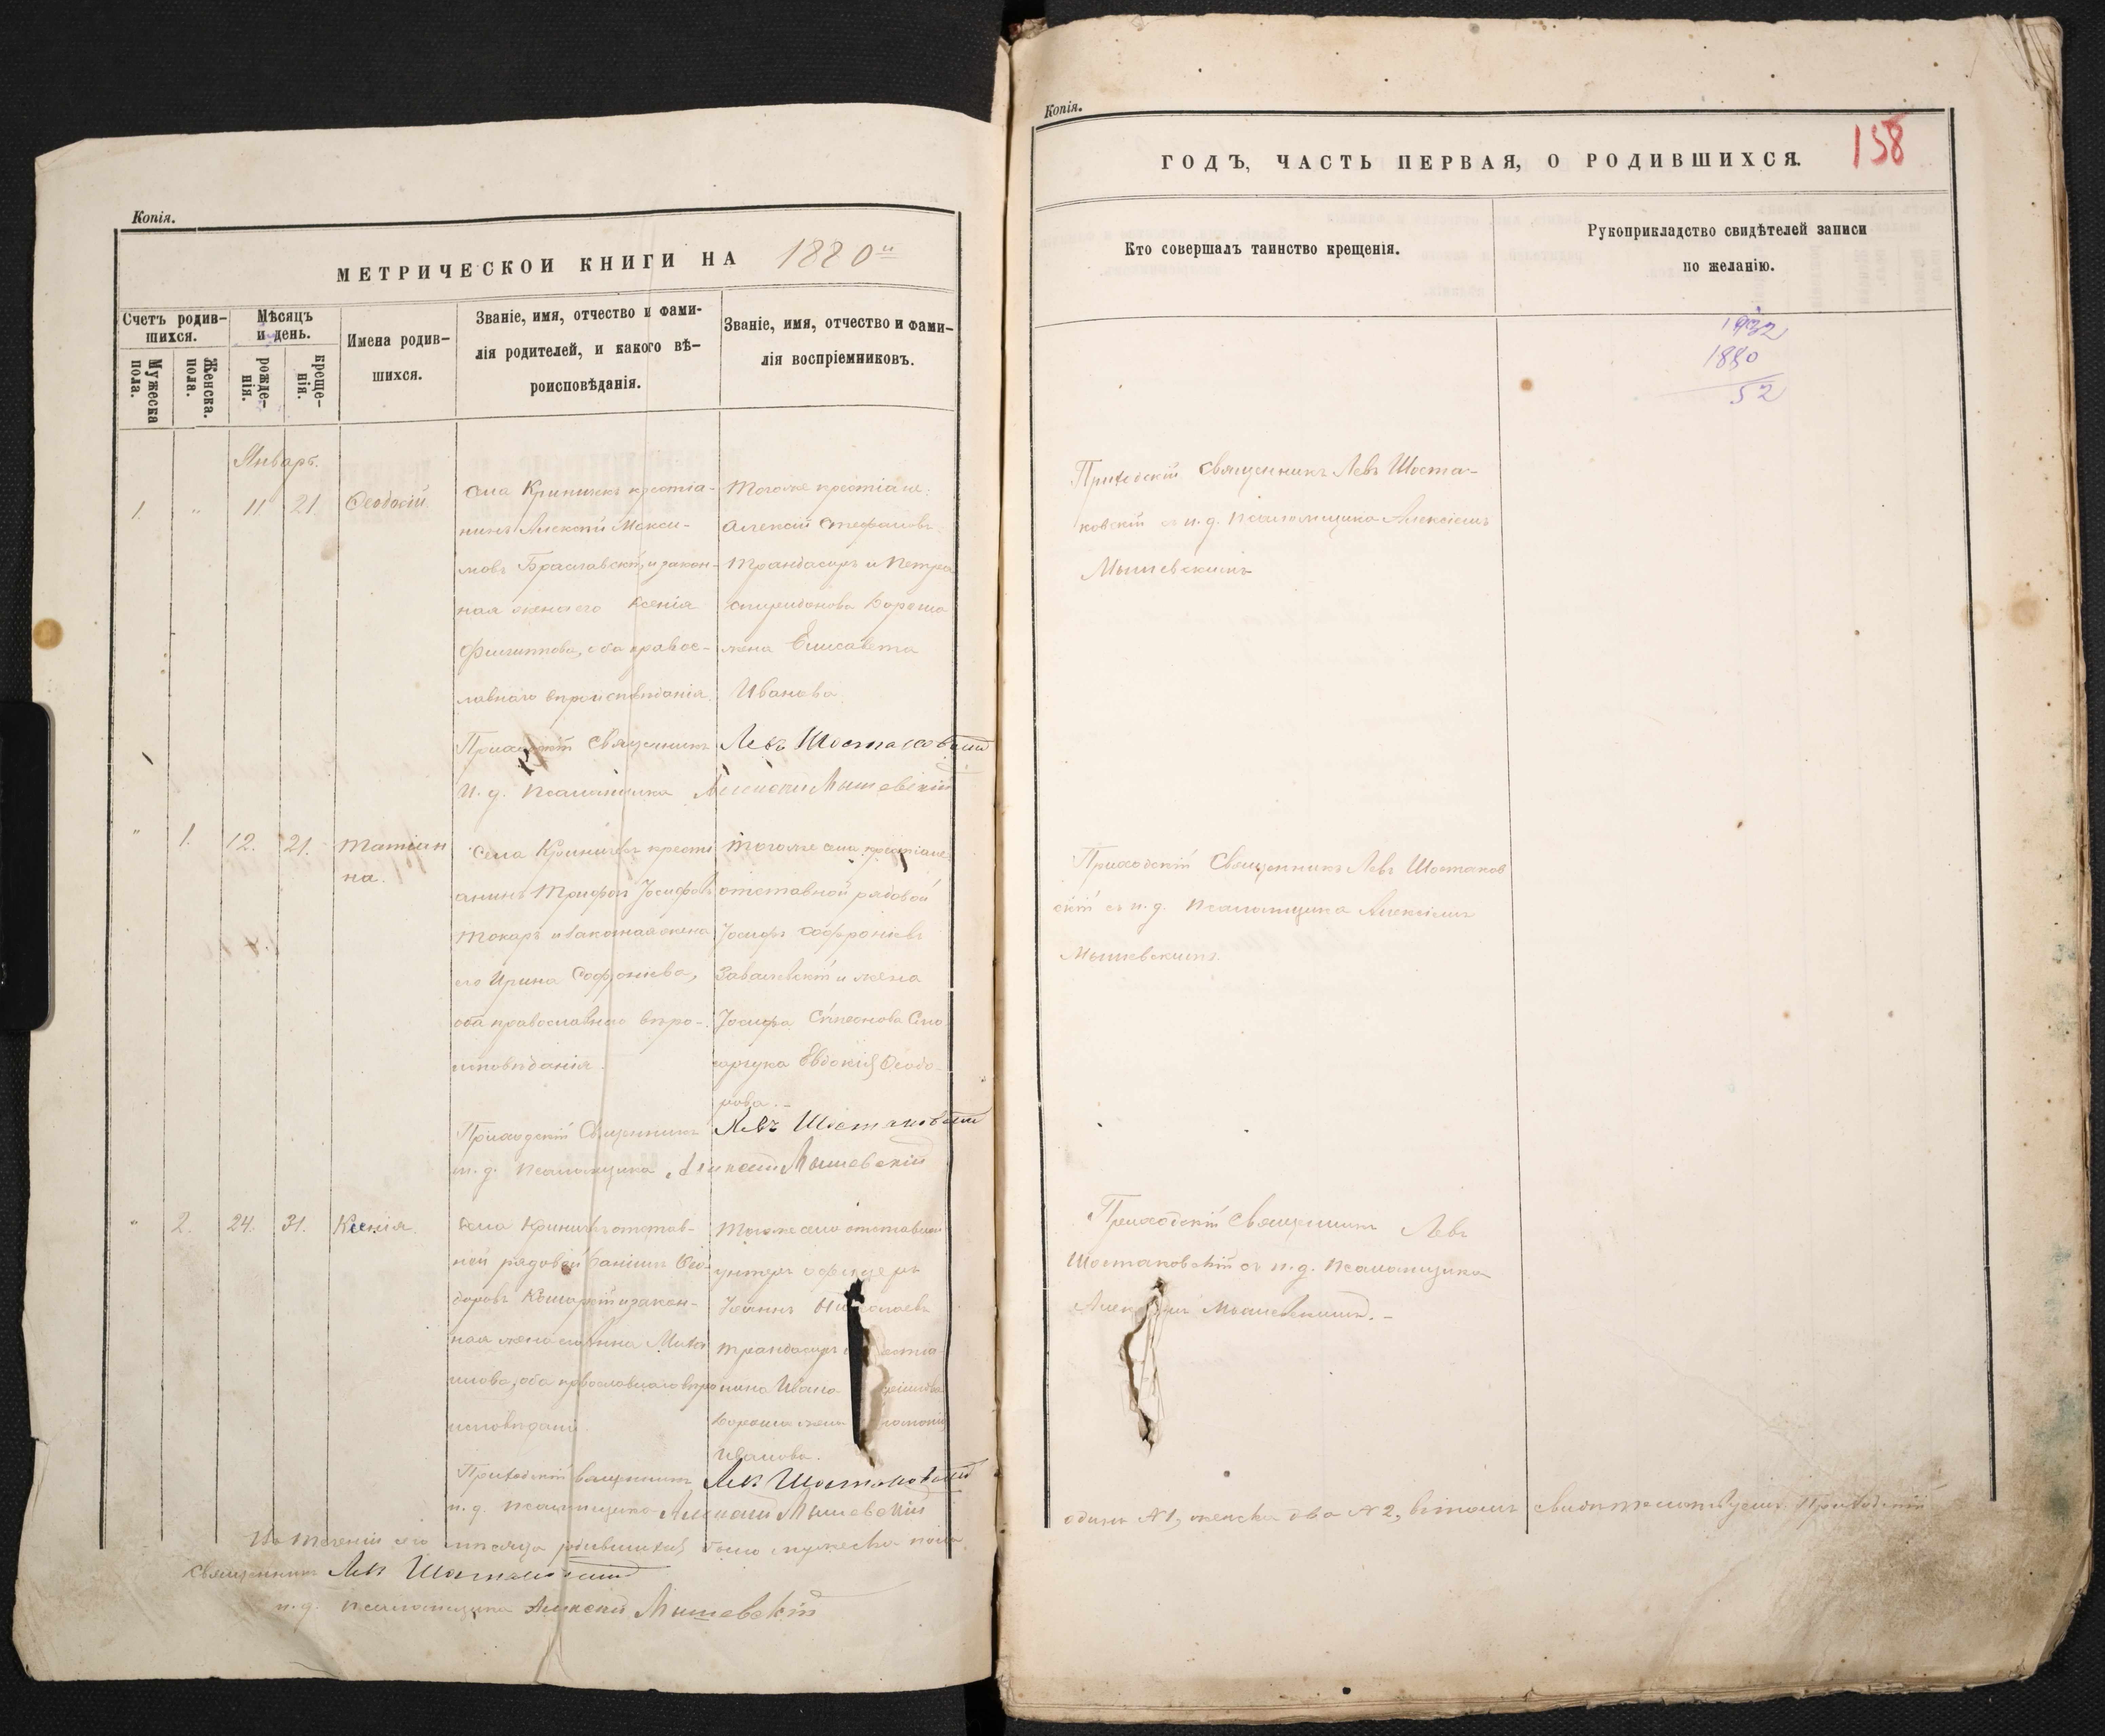 Копія.
МЕТРИЧЕСКОЙ КНИГИ НА 1880й
Счетъ родив-
шихся.
Мужеска
пола.
Женска.
пола.
Мѣсяцъ
и день.
рожде-
нія.
креще-
нія.
Имена родив-
шихся.
Званіе, имя, отчество и фами-
лія родителей, и какого вѣ-
роисповѣданія.
Званіе, имя, отчество и фами-
лія воспріемниковъ.
Январь.
1. " 11 21. Ѳеодосій
Села Криничекъ крестья-
нинъ Алексѣй Макси-
мовъ Браславскій, и закон-
ная жена его Ксенія
Филиппова, оба правос-
лавнаго вѣроисповѣданія.
Тогоже крестьяне:
Алексѣй Стефановъ
Трандасиръ и Петра
Спиридонова Вороша
жена Елисавета
Иванова.
Приходскій Священникъ Левъ Шостаковскій
И. д. Псаломщика Алексѣй Мышевскій
" 1. 12. 21. Татіян
на.
Села Криничекъ крестья
анинъ Трифон Іосифовъ
Токарь и законная жена
его Ирина Софроніева,
оба православнаго вѣро-
исповѣданія.
Тогоже села крестьяне
отставной рядовой
Іосифъ Софроніевъ
и жена
Іосифа
Евдокія Ѳеодо-
рова.-
Приходскій Священникъ Левъ Шостаковскій
и. д. Псаломщика Алексѣй Мышевскій
" 2. 24. 31. Ксенія.
Села Криничекъ отстав-
ной рядовой Ѳео
доровъ и закон-
ная жена его Анна Миха
илова, оба православнаго вѣро
исповѣдані
Тогоже села отставной
унтеръ офицеръ
Іоаннъ Николаевъ
Трандасиръ и
нина Ивана
Вороша жена
Иванова.
Приходскій Священникъ Левъ Шостаковскій
и. д. Псаломщика Алексѣй Мышевскій
Въ теченіи сего мѣсяца родившихся было мужеска пола
Священникъ Левъ Шостаковскій
и. д. Псаломщика Алексѣй Мышевскій
Копія.
ГОДЪ, ЧАСТЬ ПЕРВАЯ, О РОДИВШИХСЯ. 158
Кто совершалъ таинство крещенія.
Рукоприкладство свидѣтелей записи
по желанію.
1932
1880
52
Приходскій Священникъ Левъ Шоста-
ковскій съ и. д. Псаломщика Алексѣемъ
Мышевскимъ
Приходскій Священникъ Левъ Шостаков
скій съ и. д. Псаломщика Алексѣемъ
Мышевскимъ.
Приходскій Священникъ Левъ
Шостаковскій съ и. д. Псаломщика
Мышевскимъ.-
одинъ №1, женска два №2, въ томъ свидѣтельствуемъ Приходскій